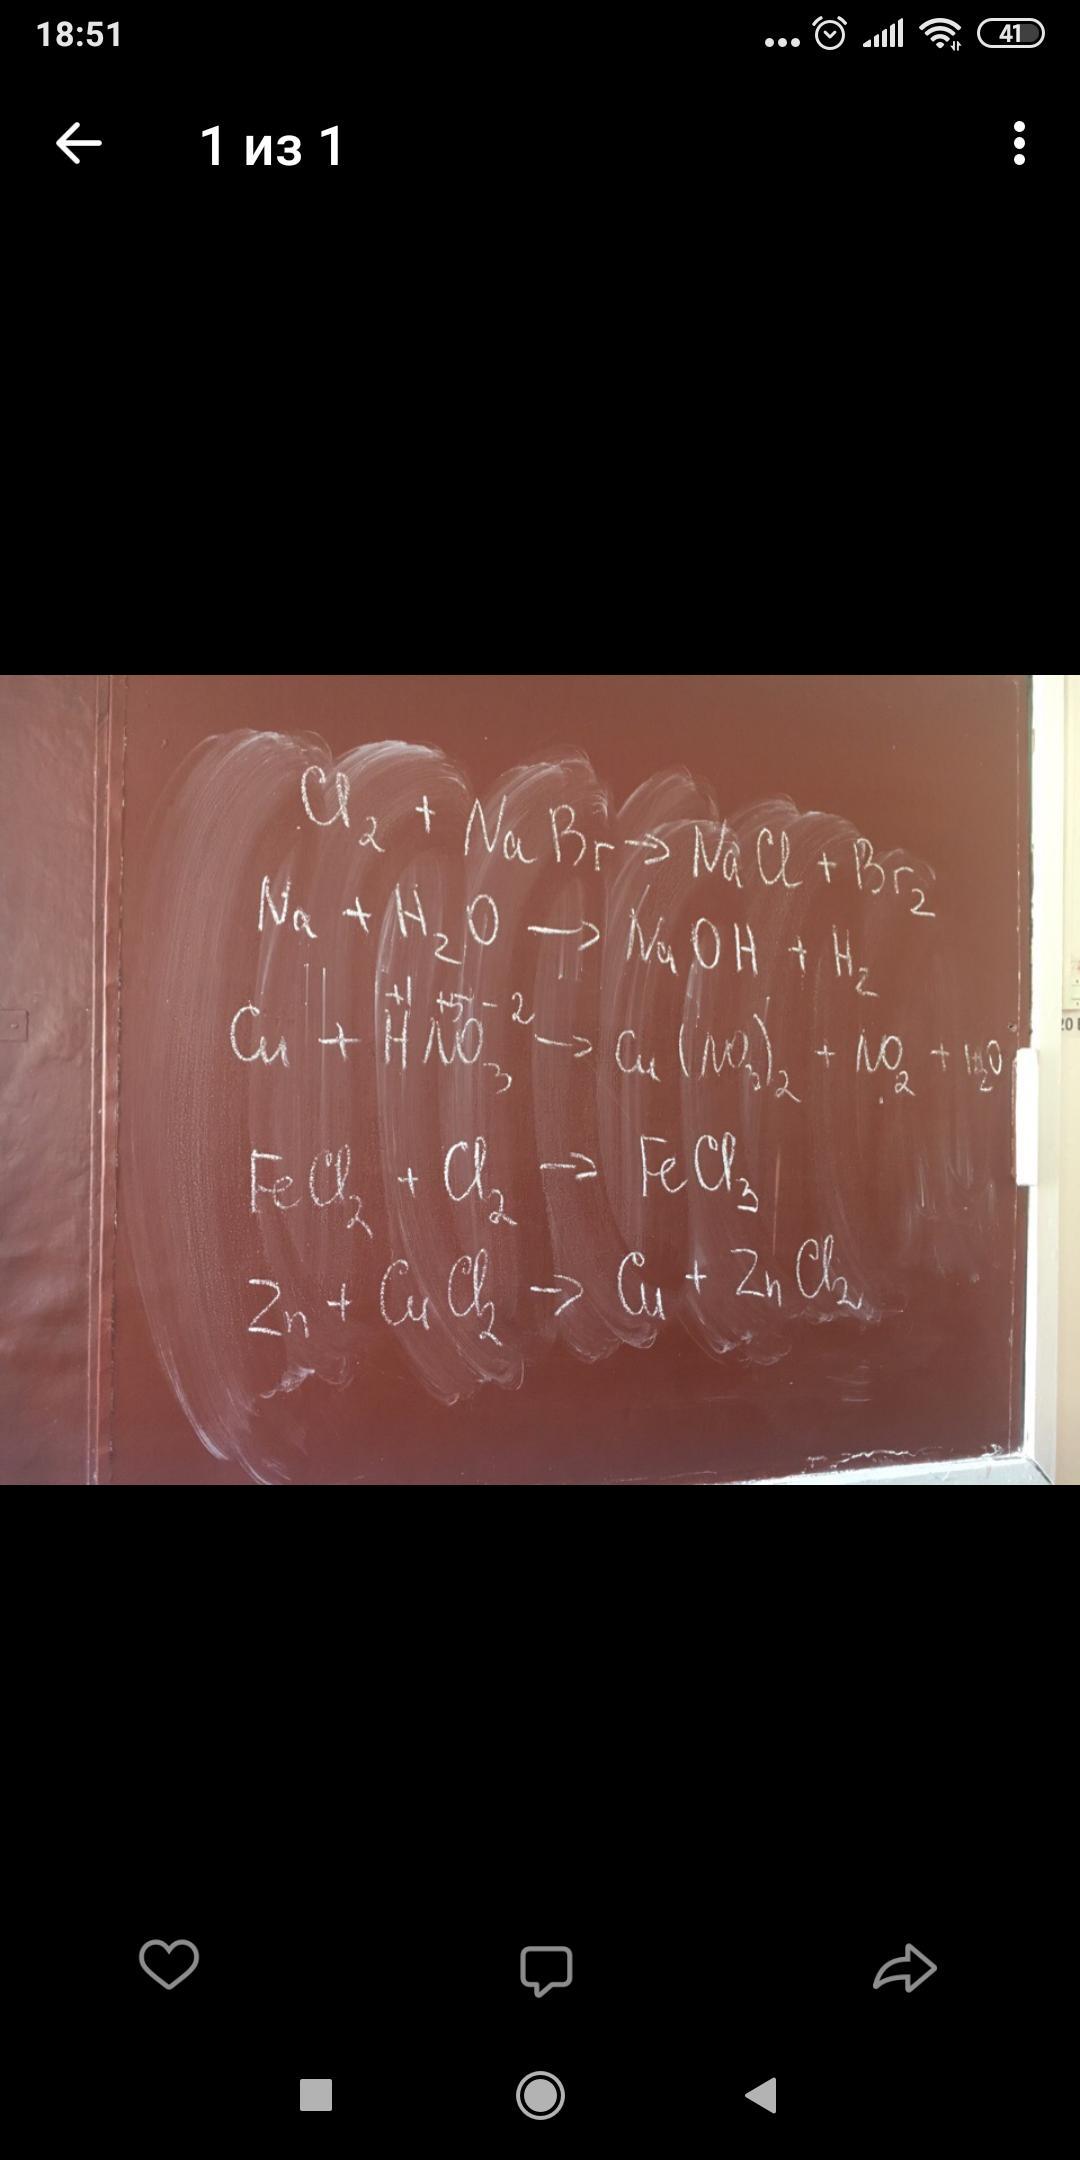 18:51
41
1 из 1
Cl₂ + NaBr → NaCl + Br₂
Na + H₂O → NaOH + H₂
+1 +5 -2
Cu + HNO₃ → Cu(NO₃)₂ + NO₂ + H₂O
FeCl₂ + Cl₂ → FeCl₃
Zn + CuCl₂ → Cu + ZnCl₂